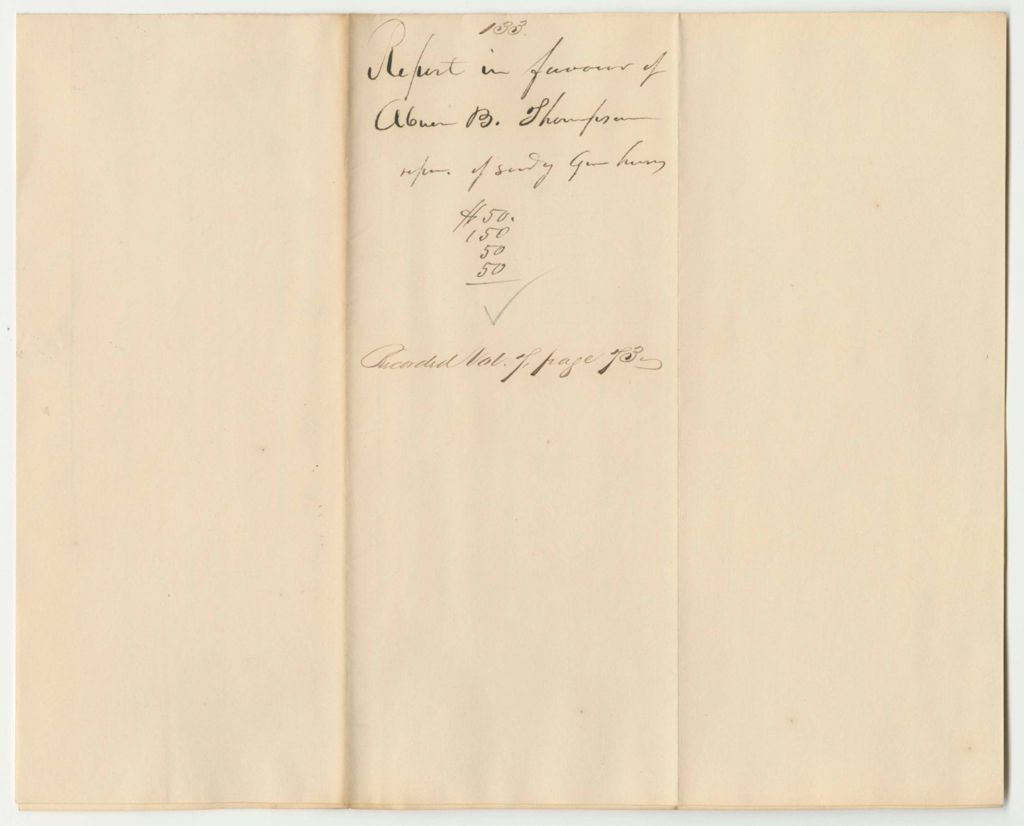 133.
Report in favour of
Abner B. Thompson
repr. of sundy Gun houses
$50.
150
50
50
Recorded Vol. 7, page 73